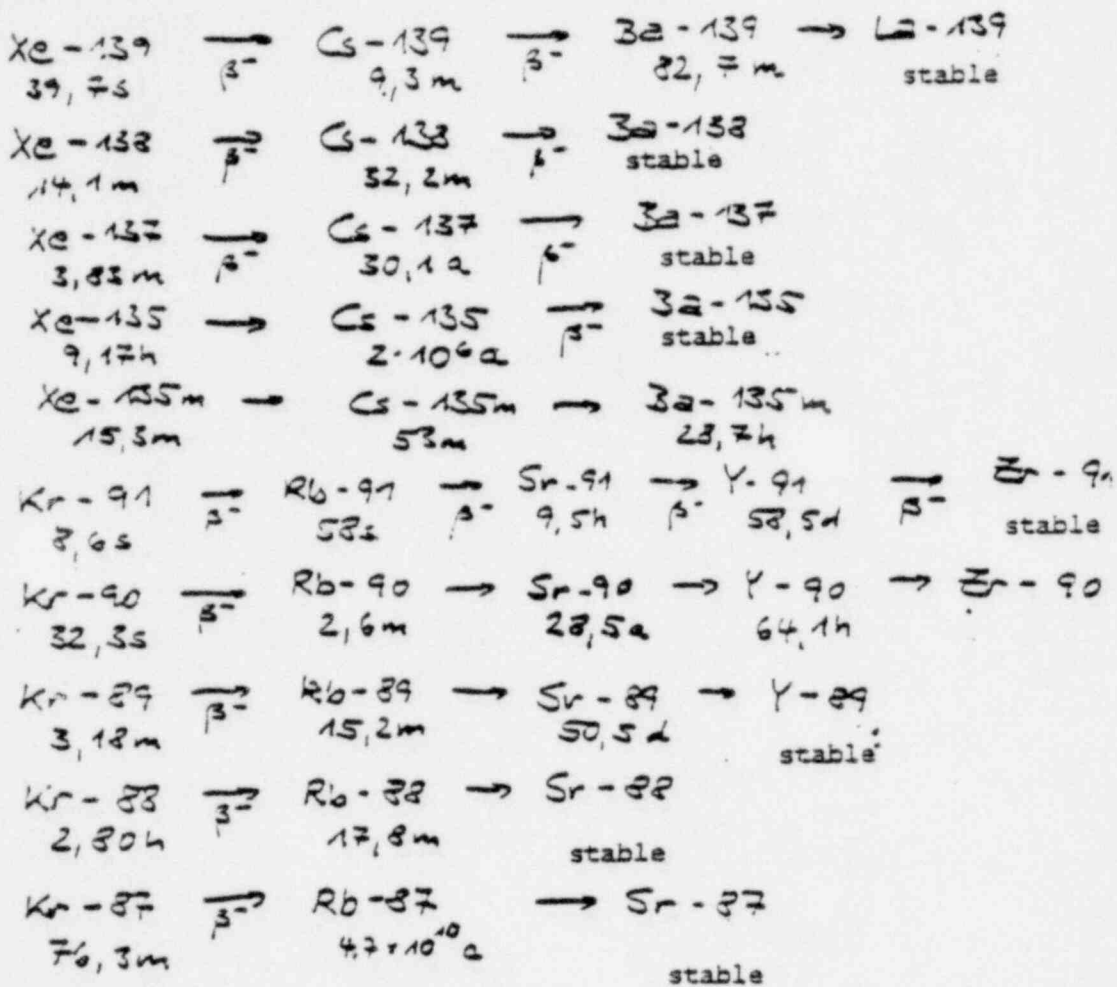 Xe-139 → Cs-139 → Ba-139 → La-139
β⁻ β⁻
39,7s 9,3m 82,7m stable
Xe-138 → Cs-138 → Ba-138
β⁻ β⁻ stable
14,1m 32,2m
Xe-137 → Cs-137 → Ba-137
β⁻ β⁻
3,83m 30,1a stable
Xe-135 → Cs-135 → Ba-135
β⁻ stable
9,17h 2·10⁶a
Xe-135m → Cs-135m → Ba-135m
15,3m 53m 28,7h
Kr-91 → Rb-91 → Sr-91 → Y-91 → Zr-91
β⁻ β⁻ β⁻ β⁻
8,6s 58s 9,5h 58,5d stable
Kr-90 → Rb-90 → Sr-90 → Y-90 → Zr-90
β⁻
32,3s 2,6m 28,5a 64,1h
Kr-89 → Rb-89 → Sr-89 → Y-89
β⁻
3,18m 15,2m 50,5d stable
Kr-88 → Rb-88 → Sr-88
β⁻
2,80h 17,8m stable
Kr-87 → Rb-87 → Sr-87
β⁻
76,3m 4,7×10¹⁰a
stable